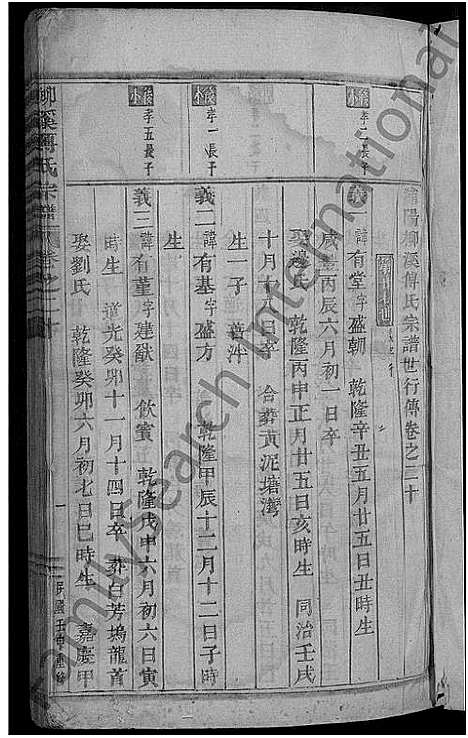 浦陽柳溪傅氏宗譜世行傳卷之三十
後 孝二長子
義一 諱有堂字盛朝 乾隆辛丑五月廿五日丑時生
咸豐丙辰六月初一日卒
娶 氏 乾隆丙申正月廿五日亥時生 同治壬戌
十月十八日卒 合葬黃泥塘灣
生一子
後 孝一長子
義二 諱有基字盛方 乾隆甲辰十二月十二日子時
生
後 孝五長子
義三 諱有董字建猷 飲賓 乾隆戊申六月初六日寅
時生 道光癸卯十一月十四日卒 葬白芳塢龍首
娶劉氏 乾隆癸卯六月初七日巳時生 嘉慶甲
柳溪傅氏宗譜 卷之三十
一
民國壬申重修
Familysearch International